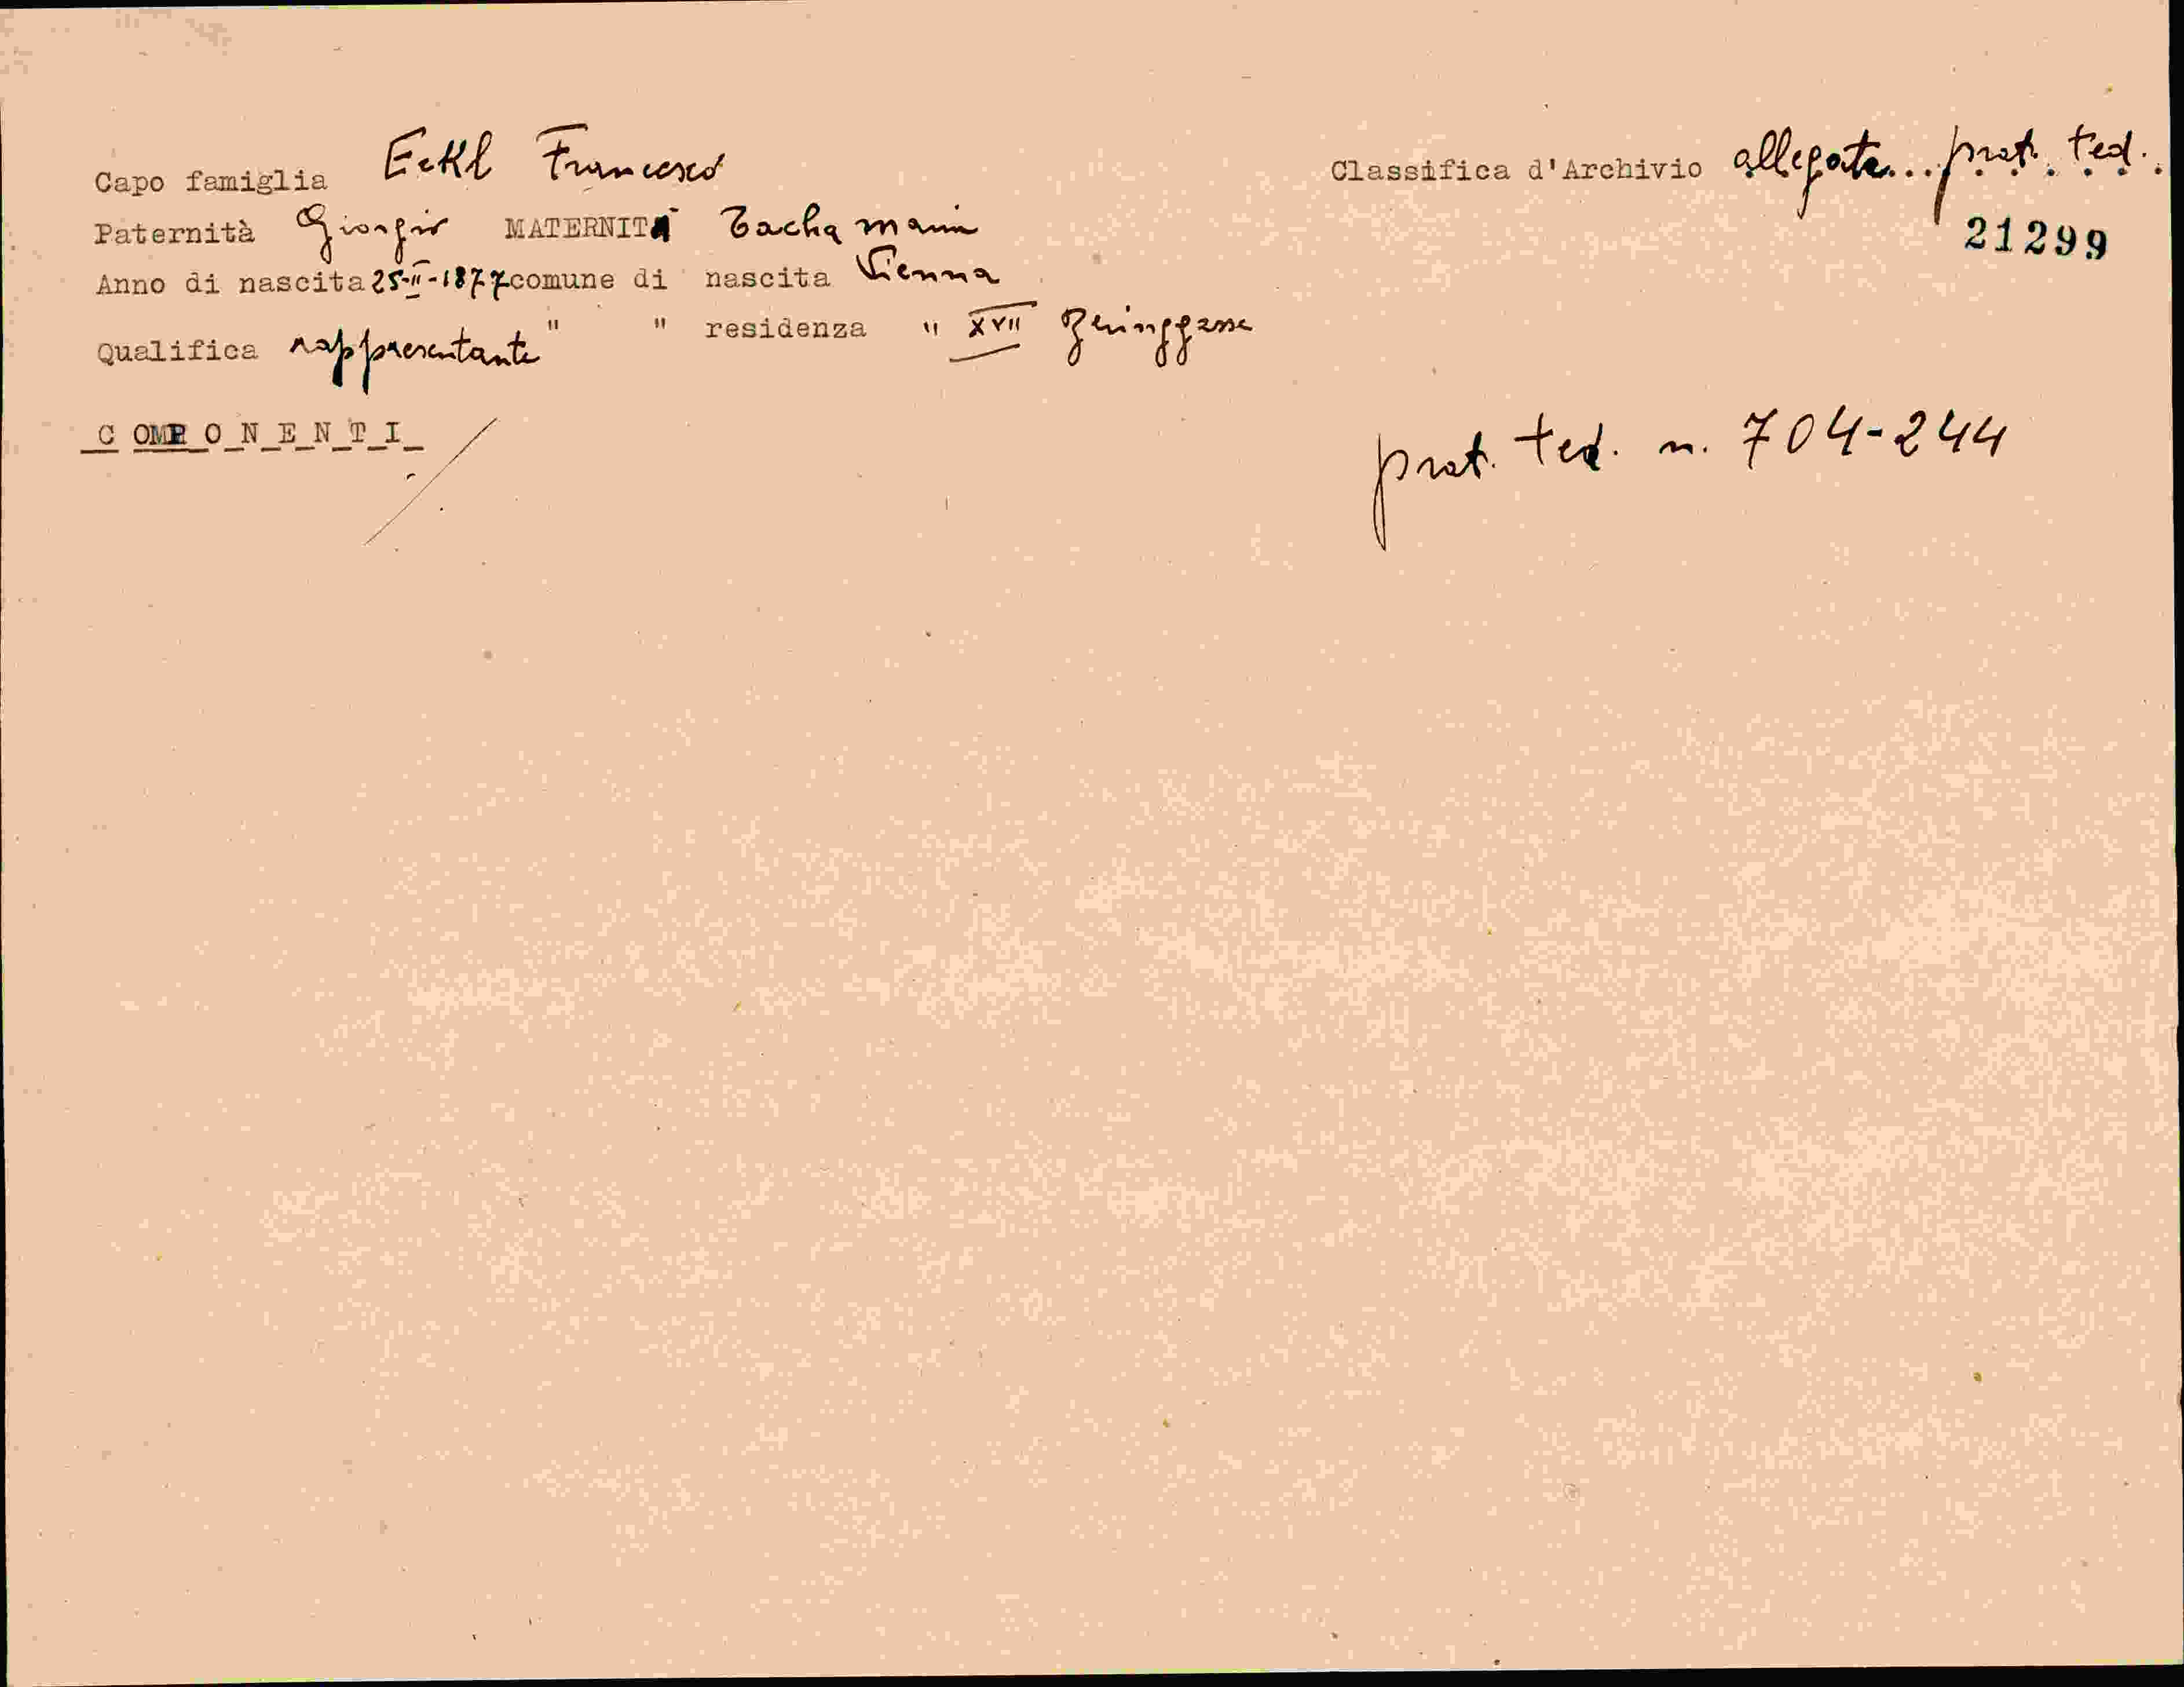 Capo famiglia Eckl Francesco
Classifica d'Archivio allegate... prot. ted.
21299
Paternità Giorgio MATERNITÀ Tacha
Anno di nascita 25-II-1877 comune di nascita Vienna
Qualifica rappresentante " " residenza " XVII
COMPONENTI
prot. ted. n. 704-244